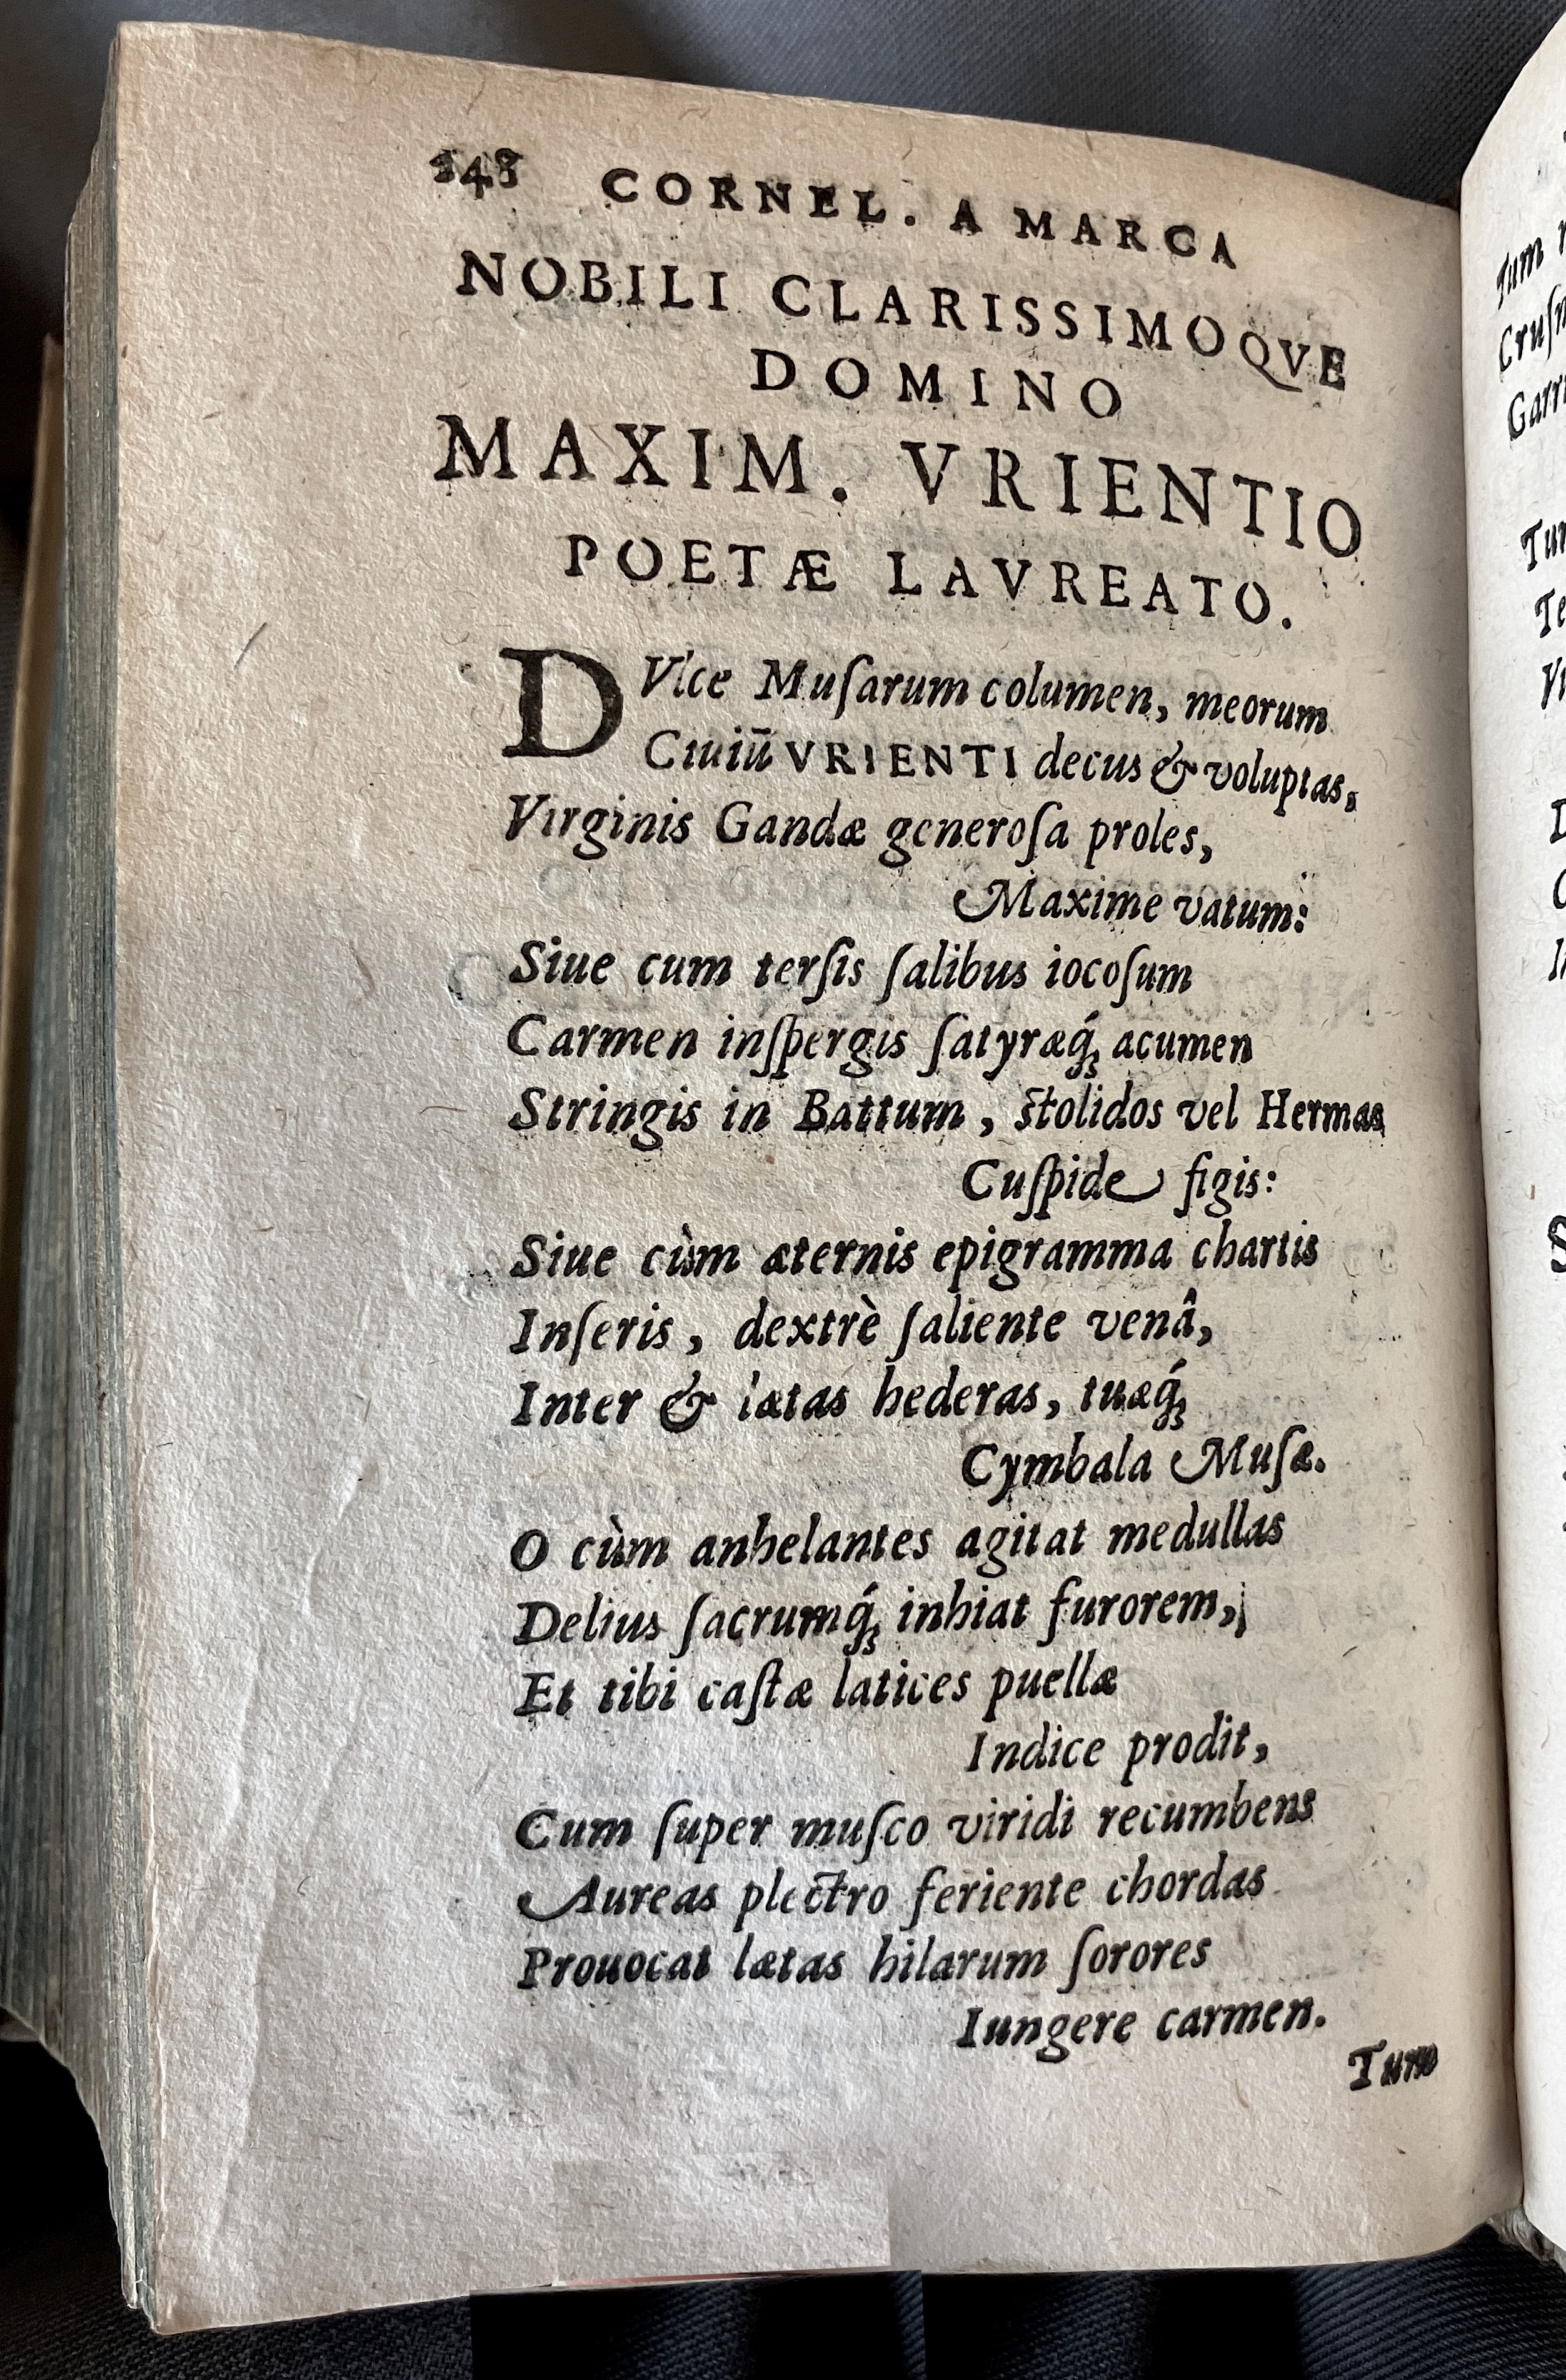 248 CORNEL. A MARCA
NOBILI CLARISSIMOQVE
DOMINO
MAXIM. VRIENTIO
POETÆ LAVREATO.
DVlce Muſarum columen, meorum
Ciuiū VRIENTI decus & voluptas,
Virginis Gandæ generoſa proles,
Maxime vatum:
Siue cum terſis ſalibus iocoſum
Carmen inſpergis ſatyræq́; acumen
Stringis in Battum, ſtolidos vel Hermas
Cuſpide figis:
Siue cùm æternis epigramma chartis
Inſeris, dextrè ſaliente venâ,
Inter & lætas hederas, tuæq́;
Cymbala Muſæ.
O cùm anhelantes agitat medullas
Delius ſacrumq́; inhiat furorem,
Et tibi caſtæ latices puellæ
Indice prodit,
Cum ſuper muſco viridi recumbens
Aureas plectro feriente chordas
Prouocat lætas hilarum ſorores
Iungere carmen.
Tum
Tum
Cruſ
Garr
Tum
Te